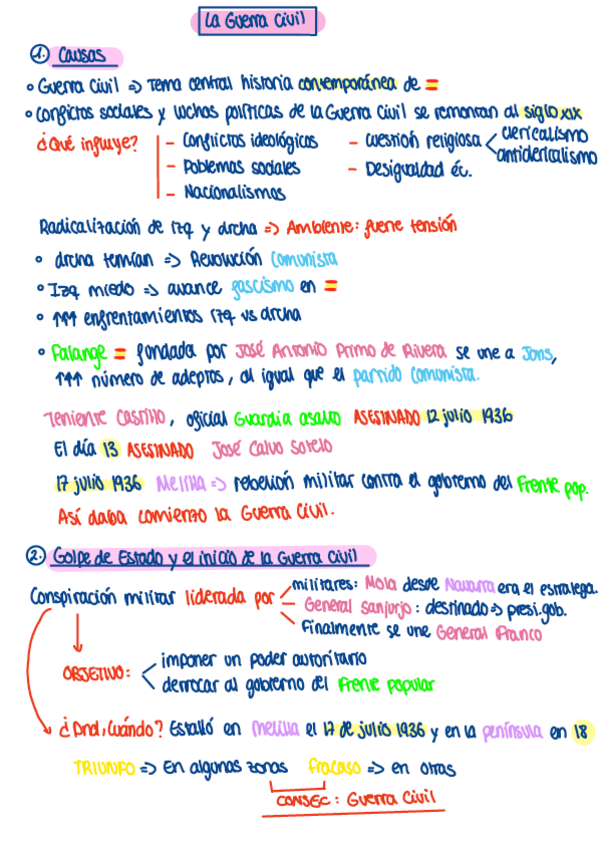 La Guerra Civil
1. Causas
• Guerra Civil => Tema central historia contemporánea de 🇪🇸
• Conflictos sociales y luchas políticas de la Guerra Civil se remontan al siglo XIX
¿Qué influye? - Conflictos ideológicos - Cuestión religiosa < clericalismo
anticlericalismo
- Poblemas sociales - Desigualdad éc.
- Nacionalismos
Radicalización de izq y drcha => Ambiente: fuerte tensión
• drcha temían => Revolución comunista
• Izq miedo => avance fascismo en 🇪🇸
• ↑↑↑ enfrentamientos izq vs drcha
• Falange 🇪🇸 fundada por José Antonio Primo de Rivera se une a Jons,
↑↑↑ número de adeptos, al igual que el partido comunista.
Teniente Castillo, oficial Guardia asalto ASESINADO 12 julio 1936
El día 13 ASESINADO José Calvo Sotelo
17 julio 1936 Melilla => rebelión militar contra el gobierno del Frente pop.
Así daba comienzo la Guerra Civil.
2. Golpe de Estado y el inicio de la Guerra Civil
Conspiración militar liderada por - militares: Mola desde Navarra era el estratega.
- General Sanjurjo: destinado => presi.gob.
- Finalmente se une General Franco
OBJETIVO: < imponer un poder autoritario
derrocar al gobierno del Frente popular
¿Dnd, Cuándo? Estalló en Melilla el 17 de julio 1936 y en la península en 18
TRIUNFO => En algunas zonas Fracaso => en otras
CONSEC: Guerra Civil